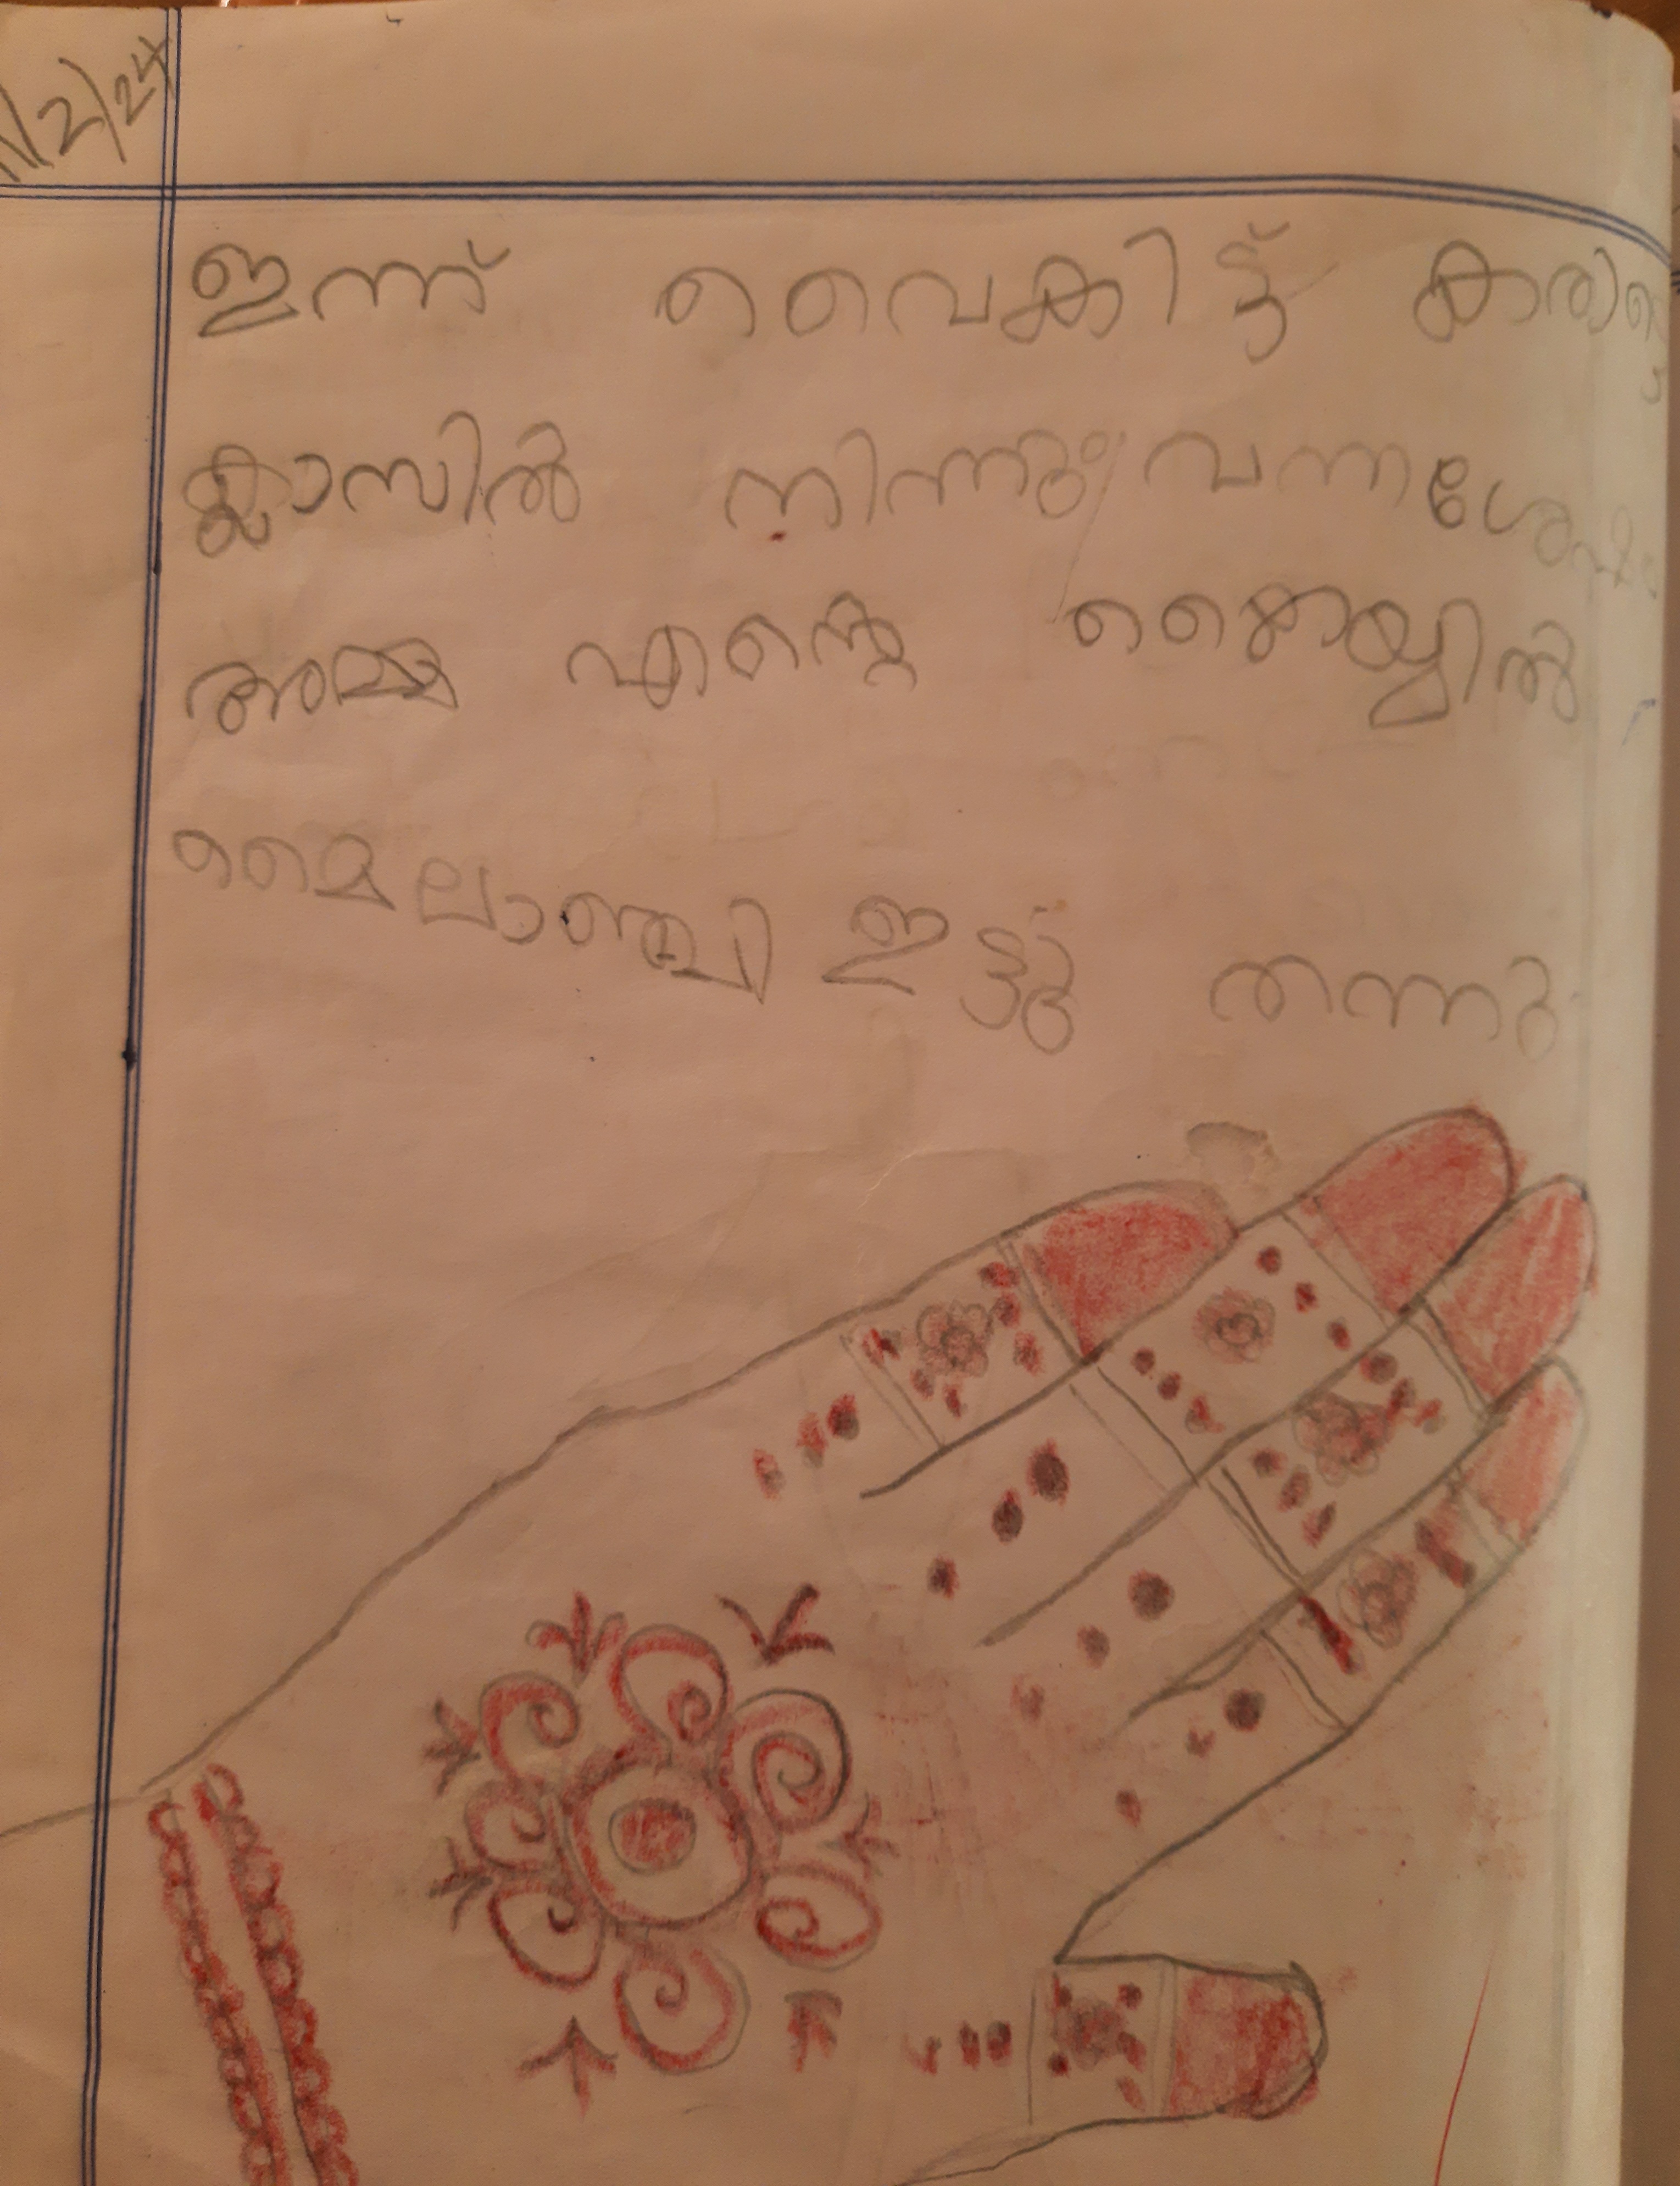 1/2/24
ഇന്ന് വൈകിട്ട്
ക്ലാസിൽ നിന്നും വന്നശേഷം
അമ്മ എന്റെ കൈയ്യിൽ
മൈലാഞ്ചി ഇട്ടു തന്നു